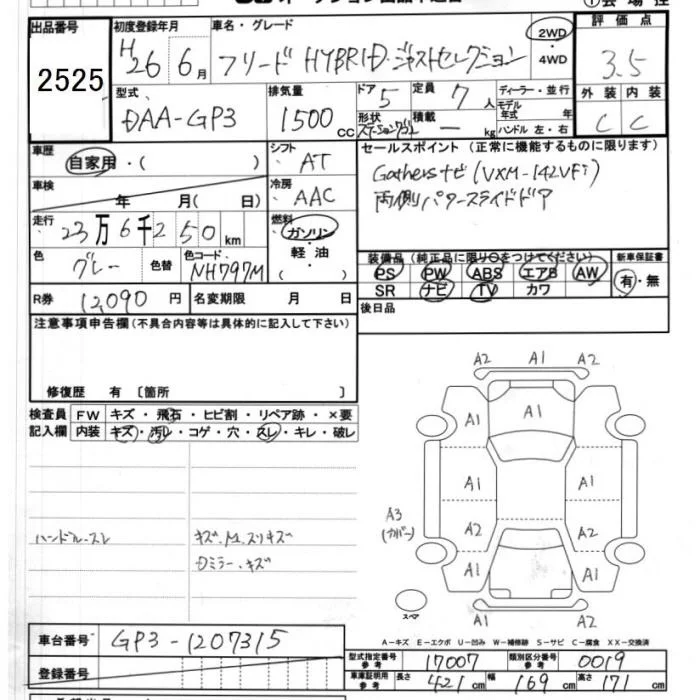 出品番号
2525
初度登録年月
H 26 6月
車名・グレード
フリード HYBRID・ジャストセレクション
2WD
・4WD
評価点
3.5
外装 内装
C C
型式
DAA-GP3
排気量
1500 CC
ドア
5
形状
定員
7 人
積載
— kg
ディーラー・並行
モデル年式 年
ハンドル 左・右
車歴
自家用・( )
シフト
AT
車検
年 月(日)
冷房
AAC
走行
23万6千250km
燃料
ガソリン・
軽油・
( )
色
グレー
色替
色コード
NH797M
R券 12,090 円
名変期限 月 日
セールスポイント(正常に機能するものに限ります)
Gathersナビ(VXM-142VFi)
両側パワースライドドア
装備品(純正品に限り○をつけてください)
PS PW ABS エアB AW
SR ナビ TV カワ
新車保証書
有・無
後日品
注意事項申告欄(不具合内容等は具体的に記入して下さい)
修復歴 有〔箇所 〕
検査員記入欄
FW キズ・飛石・ヒビ割・リペア跡・×要
内装 キズ・汚レ・コゲ・穴・スレ・キレ・破レ
ハンドル・スレ
キズ、M、スリキズ
Dミラー・キズ
A2 A1 A2
A1 A1 A1
A1 A1
A3
(カバー)
A2 A2
A1 A1
スペア
A-キズ E-エクボ U-凹み W-補修跡 S-サビ C-腐食 XX-交換済
車台番号 GP3-1207315
登録番号
型式指定番号 参考 17007
類別区分番号 参考 0019
車庫証明用 参考 長さ 421cm 幅 169cm 高さ 171cm